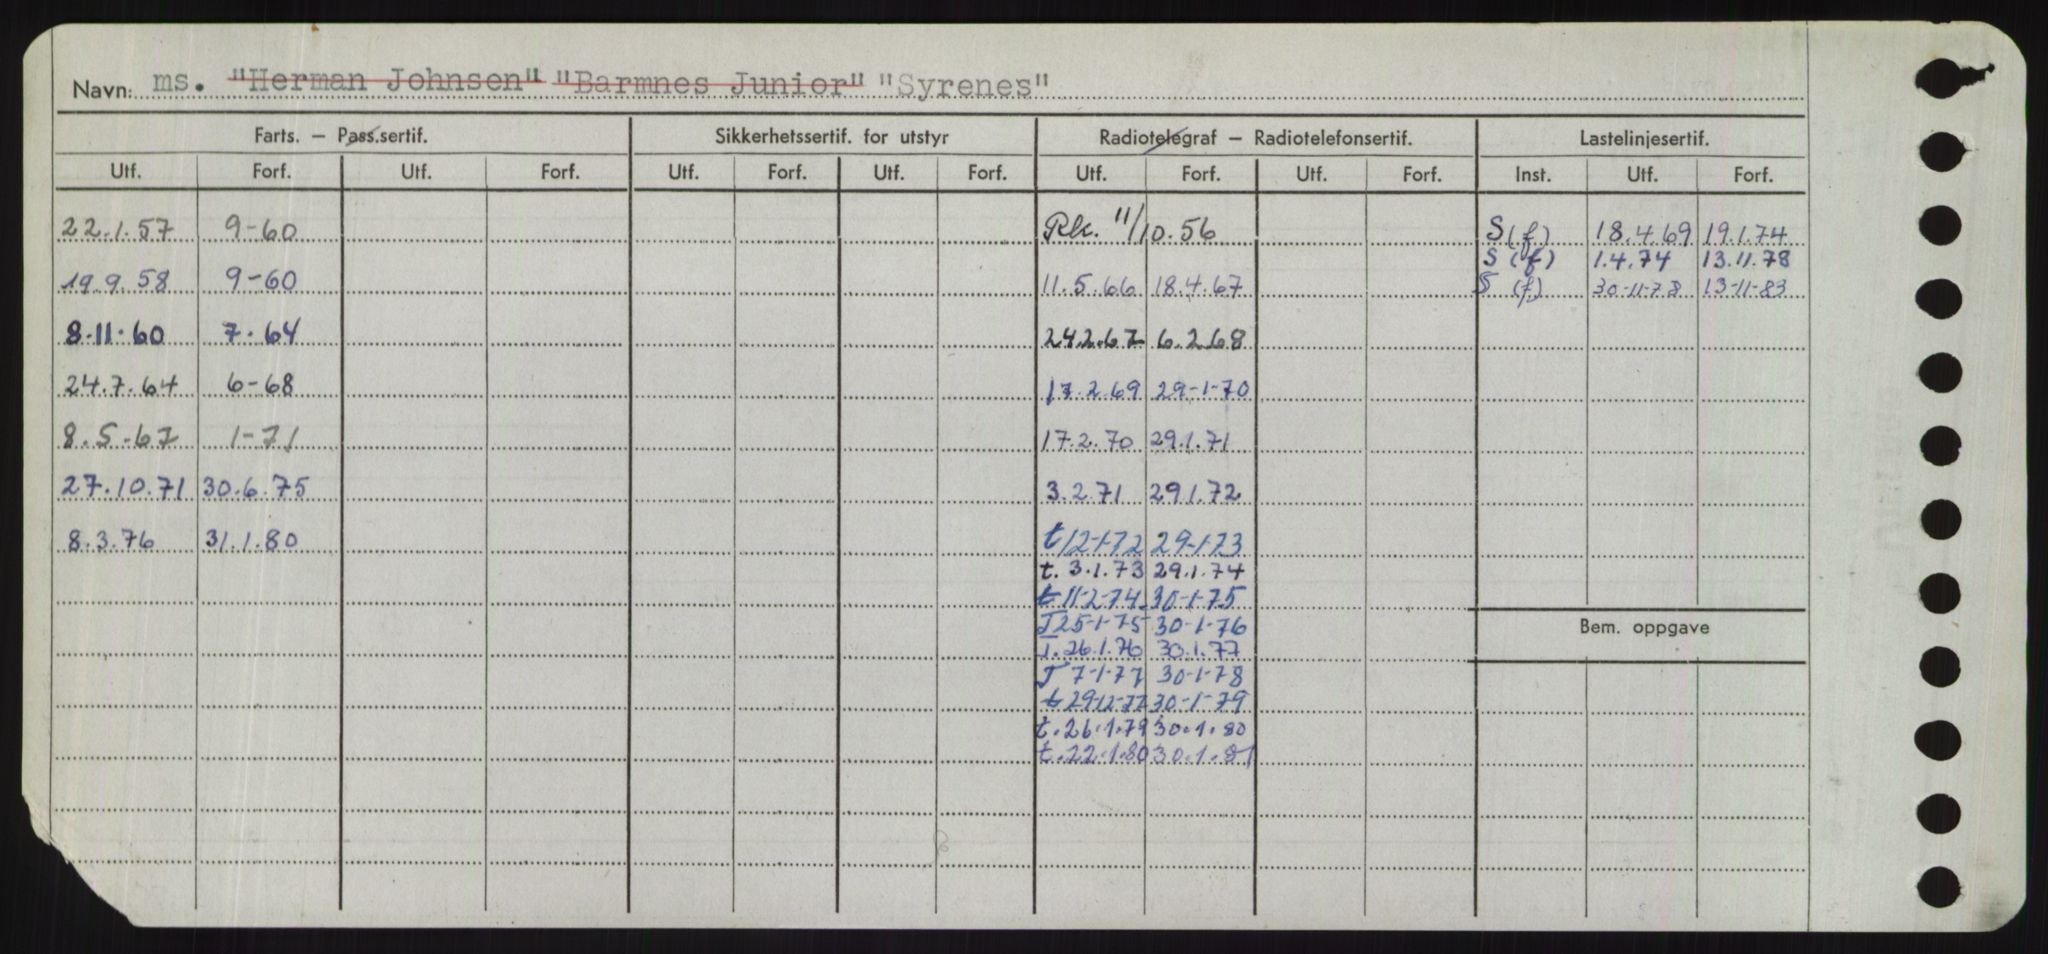 Navn: ms. "Herman Johnsen" "Barmnes Junior" "Syrenes"
Farts. — Pass.sertif. Sikkerhetssertif. for utstyr Radiotelegraf — Radiotelefonsertif. Lastelinjesertif.
Utf. Forf. Utf. Forf. Utf. Forf. Utf. Forf. Utf. Forf. Utf. Forf. Inst. Utf. Forf.
22.1.57 9-60 11/10.56 S(f) 18.4.69 19.1.74
S (f) 1.4.74 13.11.78
19.9.58 9-60 11.5.66 18.4.67 S (f) 30-11-78 13-11-83
8.11.60 7.64 24.2.67 6.2.68
24.7.64 6-68 17.2.69 29-1-70
8.5.67 1-71 17.2.70 29.1.71
27.10.71 30.6.75 3.2.71 29.1.72
8.3.76 31.1.80 t 12-1-72 29-1-73
t. 3.1.73 29.1.74
t 11-2-74 30-1-75
T 25-1-75 30-1-76
Bem. oppgave
T. 26.1.76 30.1.77
T 7-1-77 30-1-78
t 29-12-77 30-1-79
t. 26.1.79 30.1.80
t. 22.1.80 30.1.81